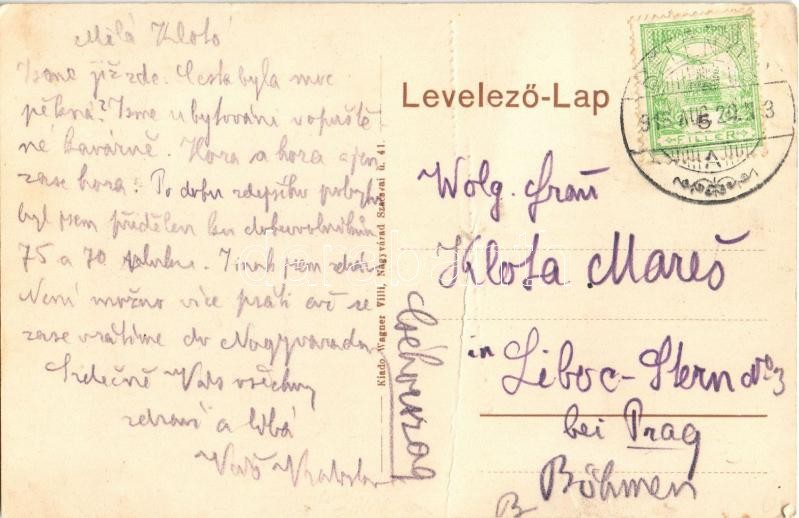 Milá Kloto
Jsme již zde. Cesta byla moc
pěkná? Jsme ubytováni v opuště-
né kavárně. Hora a hora a jen
zase hora. Po dobu zdejšího pobytu
byl jsem přidělen ku dobrovolníkům
75 a 70 pluku. Jinak jsem zdráv
Není možno více psáti až se
zase vrátíme do Nagyváradu
Srdečně Vás všechny
zdraví a líbá
Váš
Kiadó Wagner Vilmos, Nagyvárad Szacsvai u. 41.
Levelező-Lap
MAGYAR KIR. POSTA
5
FILLER
915 AUG 29
Wolg. Frau
Klota Mareš
in Liboc-Stern No 3
bei Prag
Böhmen
B
Csehország